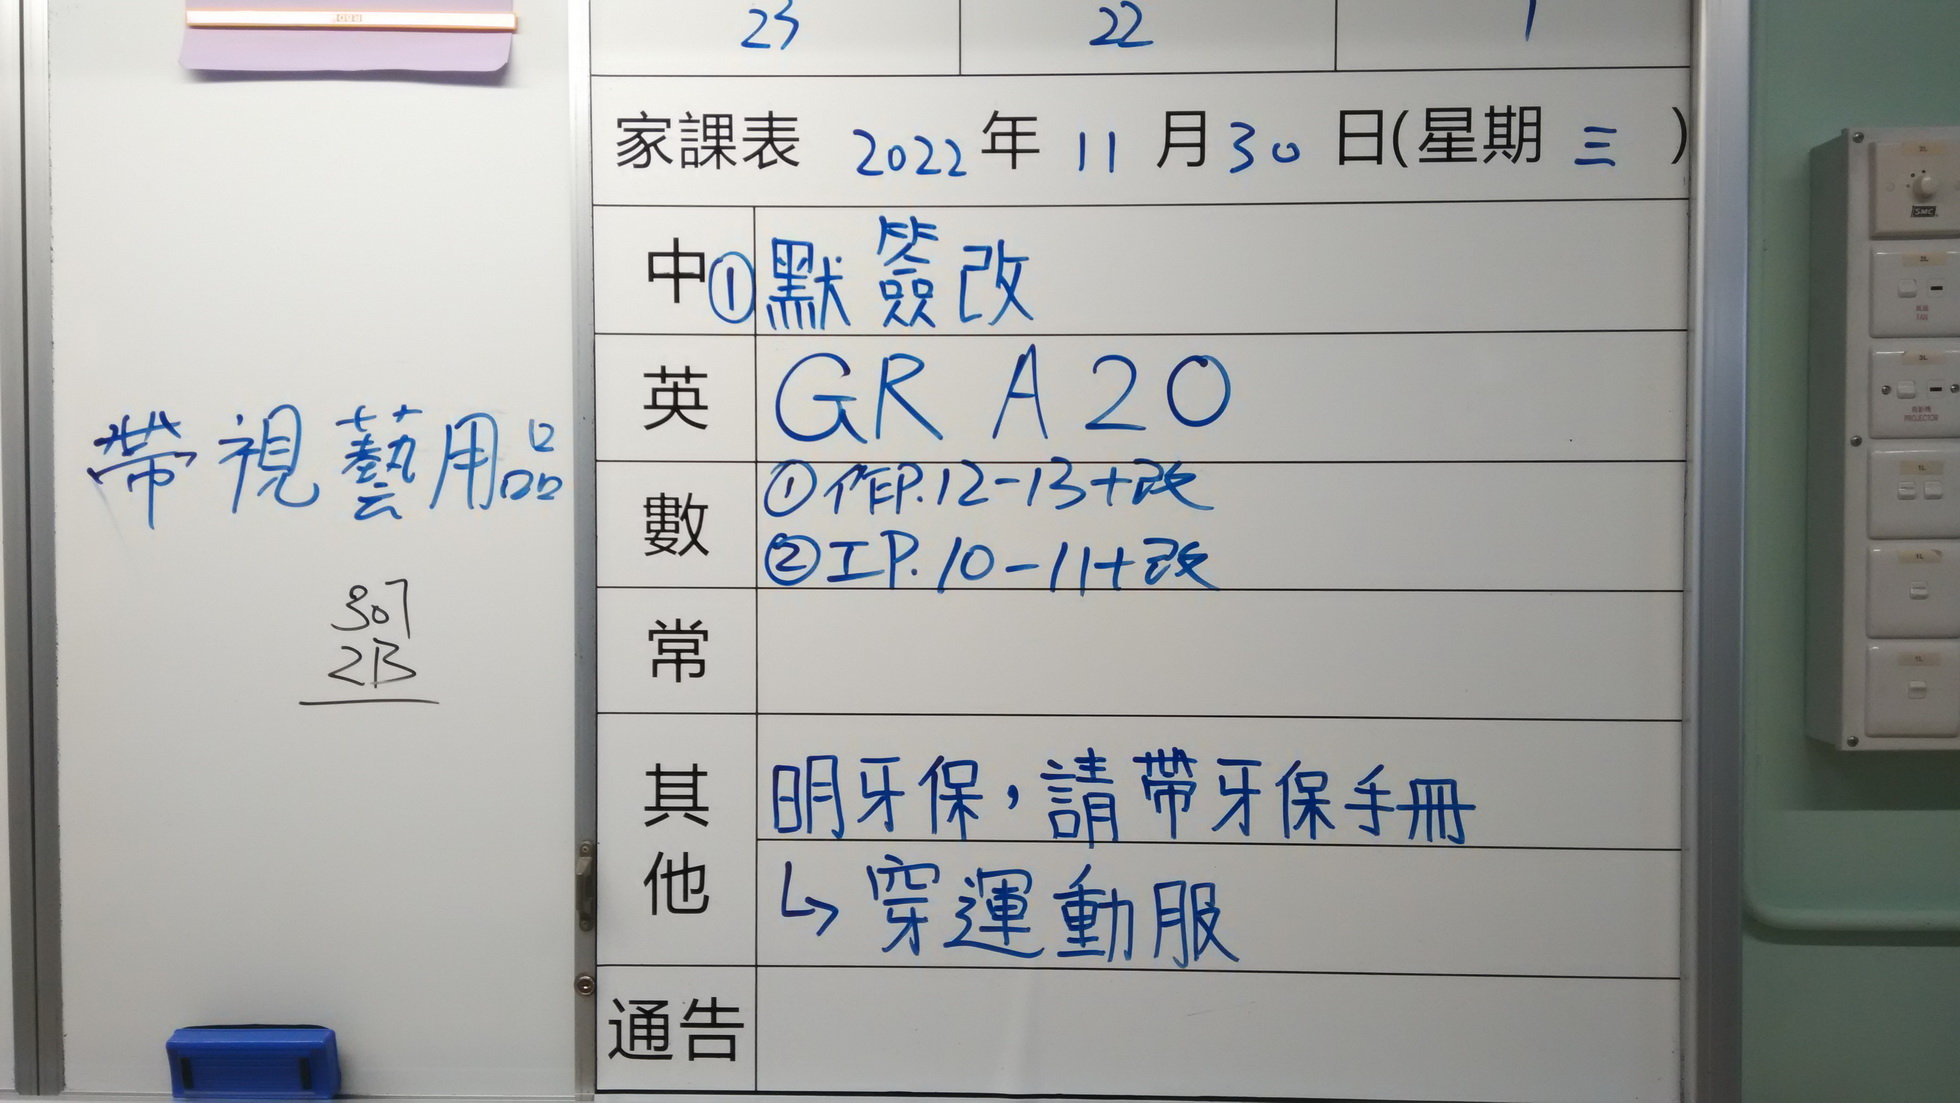 23 22 1
家課表 2022年 11月30日(星期三)
中 ①默簽改
英 GR A20
數 ①作P.12-13+改
②工P.10-11+改
常
其他 明牙保，請帶牙保手冊
↳穿運動服
通告
帶視藝用品
307
2B
SMC
PROJECTOR